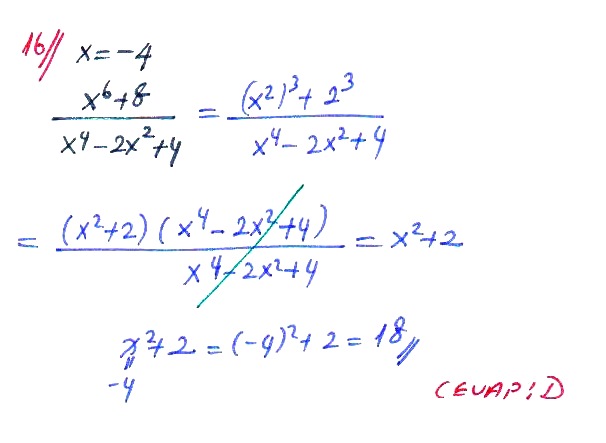 16// x=-4
x⁶+8 / x⁴-2x²+4 = (x²)³+2³ / x⁴-2x²+4
= (x²+2)(x⁴-2x²+4) / x⁴-2x²+4 = x²+2
x²+2=(-4)²+2=18//
-4
CEVAP:D